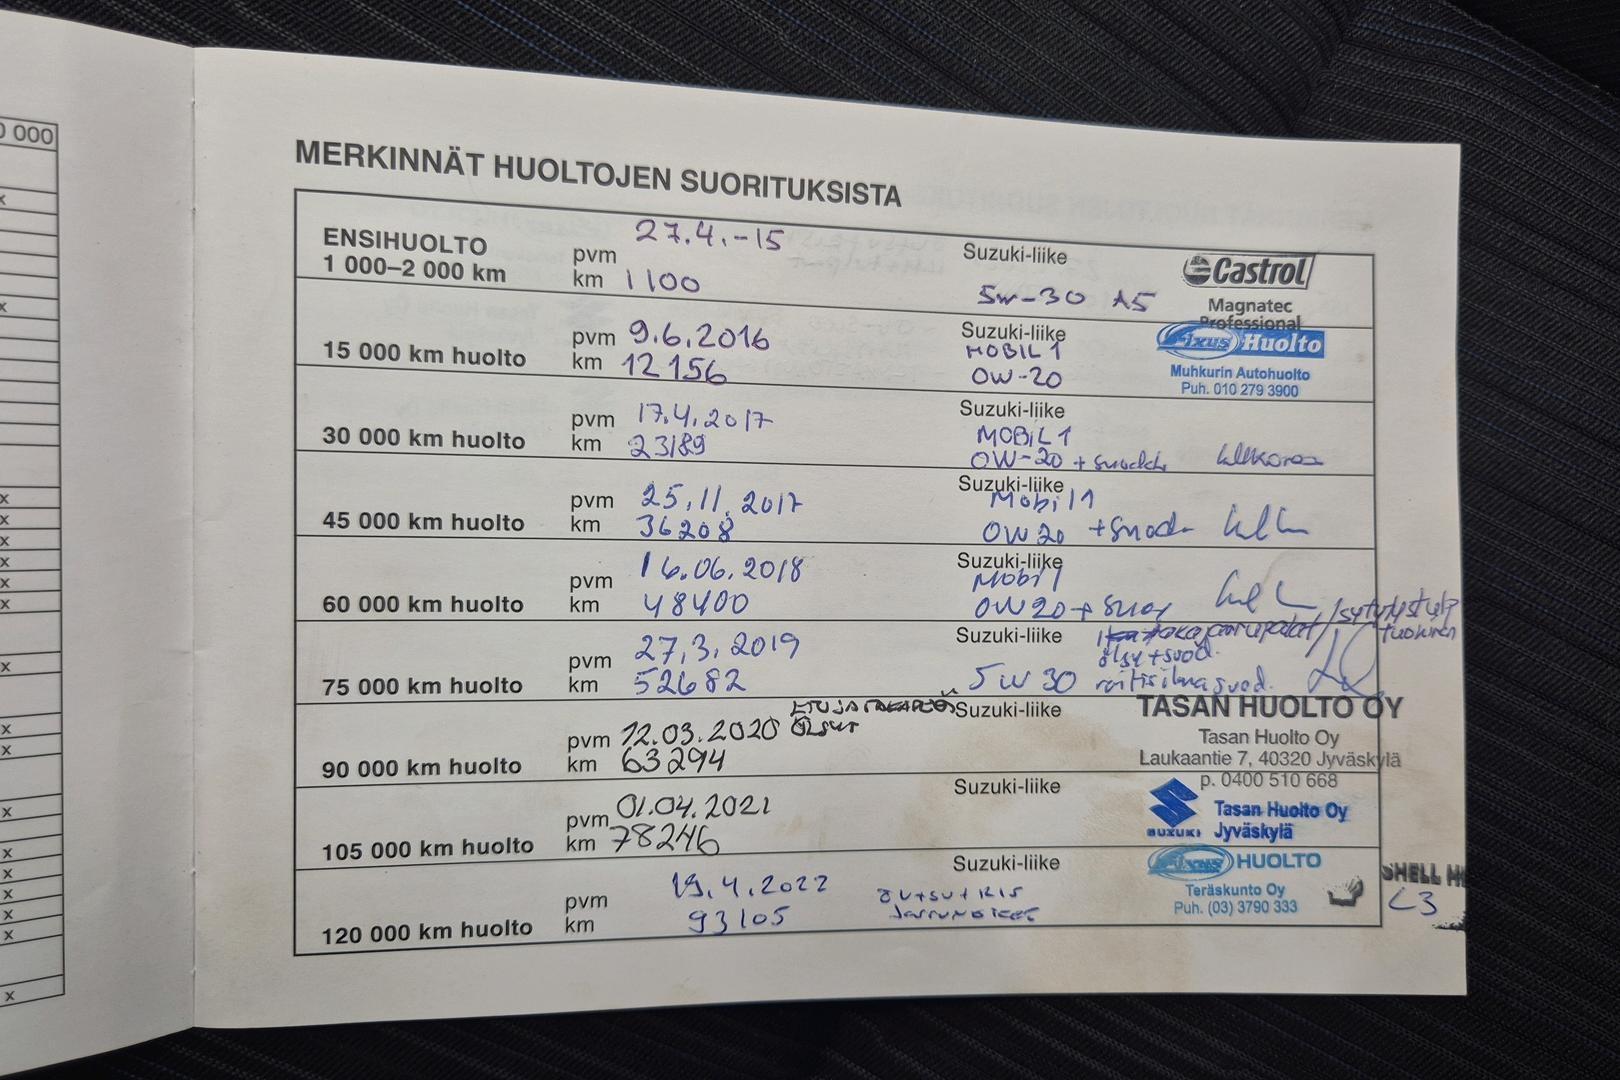 0 000
MERKINNÄT HUOLTOJEN SUORITUKSISTA
ENSIHUOLTO
1 000–2 000 km
pvm 27.4.-15
km 1100
Suzuki-liike
5W-30 A5
Castrol
Magnatec
Professional
15 000 km huolto
pvm 9.6.2016
km 12156
Suzuki-liike
MOBIL 1
0W-20
Fixus Huolto
Muhkurin Autohuolto
Puh. 010 279 3900
30 000 km huolto
pvm 17.4.2017
km 23189
Suzuki-liike
MOBIL 1
0W-20 +
45 000 km huolto
pvm 25.11.2017
km 36208
Suzuki-liike
Mobil 1
0W20 +suod
60 000 km huolto
pvm 16.06.2018
km 48400
Suzuki-liike
Mobil 1
0W20 +
75 000 km huolto
pvm 27.3.2019
km 52682
Suzuki-liike
öljy+suod.
5W30 raitisilmasuod.
90 000 km huolto
pvm 12.03.2020
km 63294
Suzuki-liike
TASAN HUOLTO OY
Tasan Huolto Oy
Laukaantie 7, 40320 Jyväskylä
p. 0400 510 668
105 000 km huolto
pvm 01.04.2021
km 78246
Suzuki-liike
SUZUKI
Tasan Huolto Oy
Jyväskylä
120 000 km huolto
pvm 19.4.2022
km 93105
Suzuki-liike
Fixus HUOLTO
Teräskunto Oy
Puh. (03) 3790 333
SHELL H